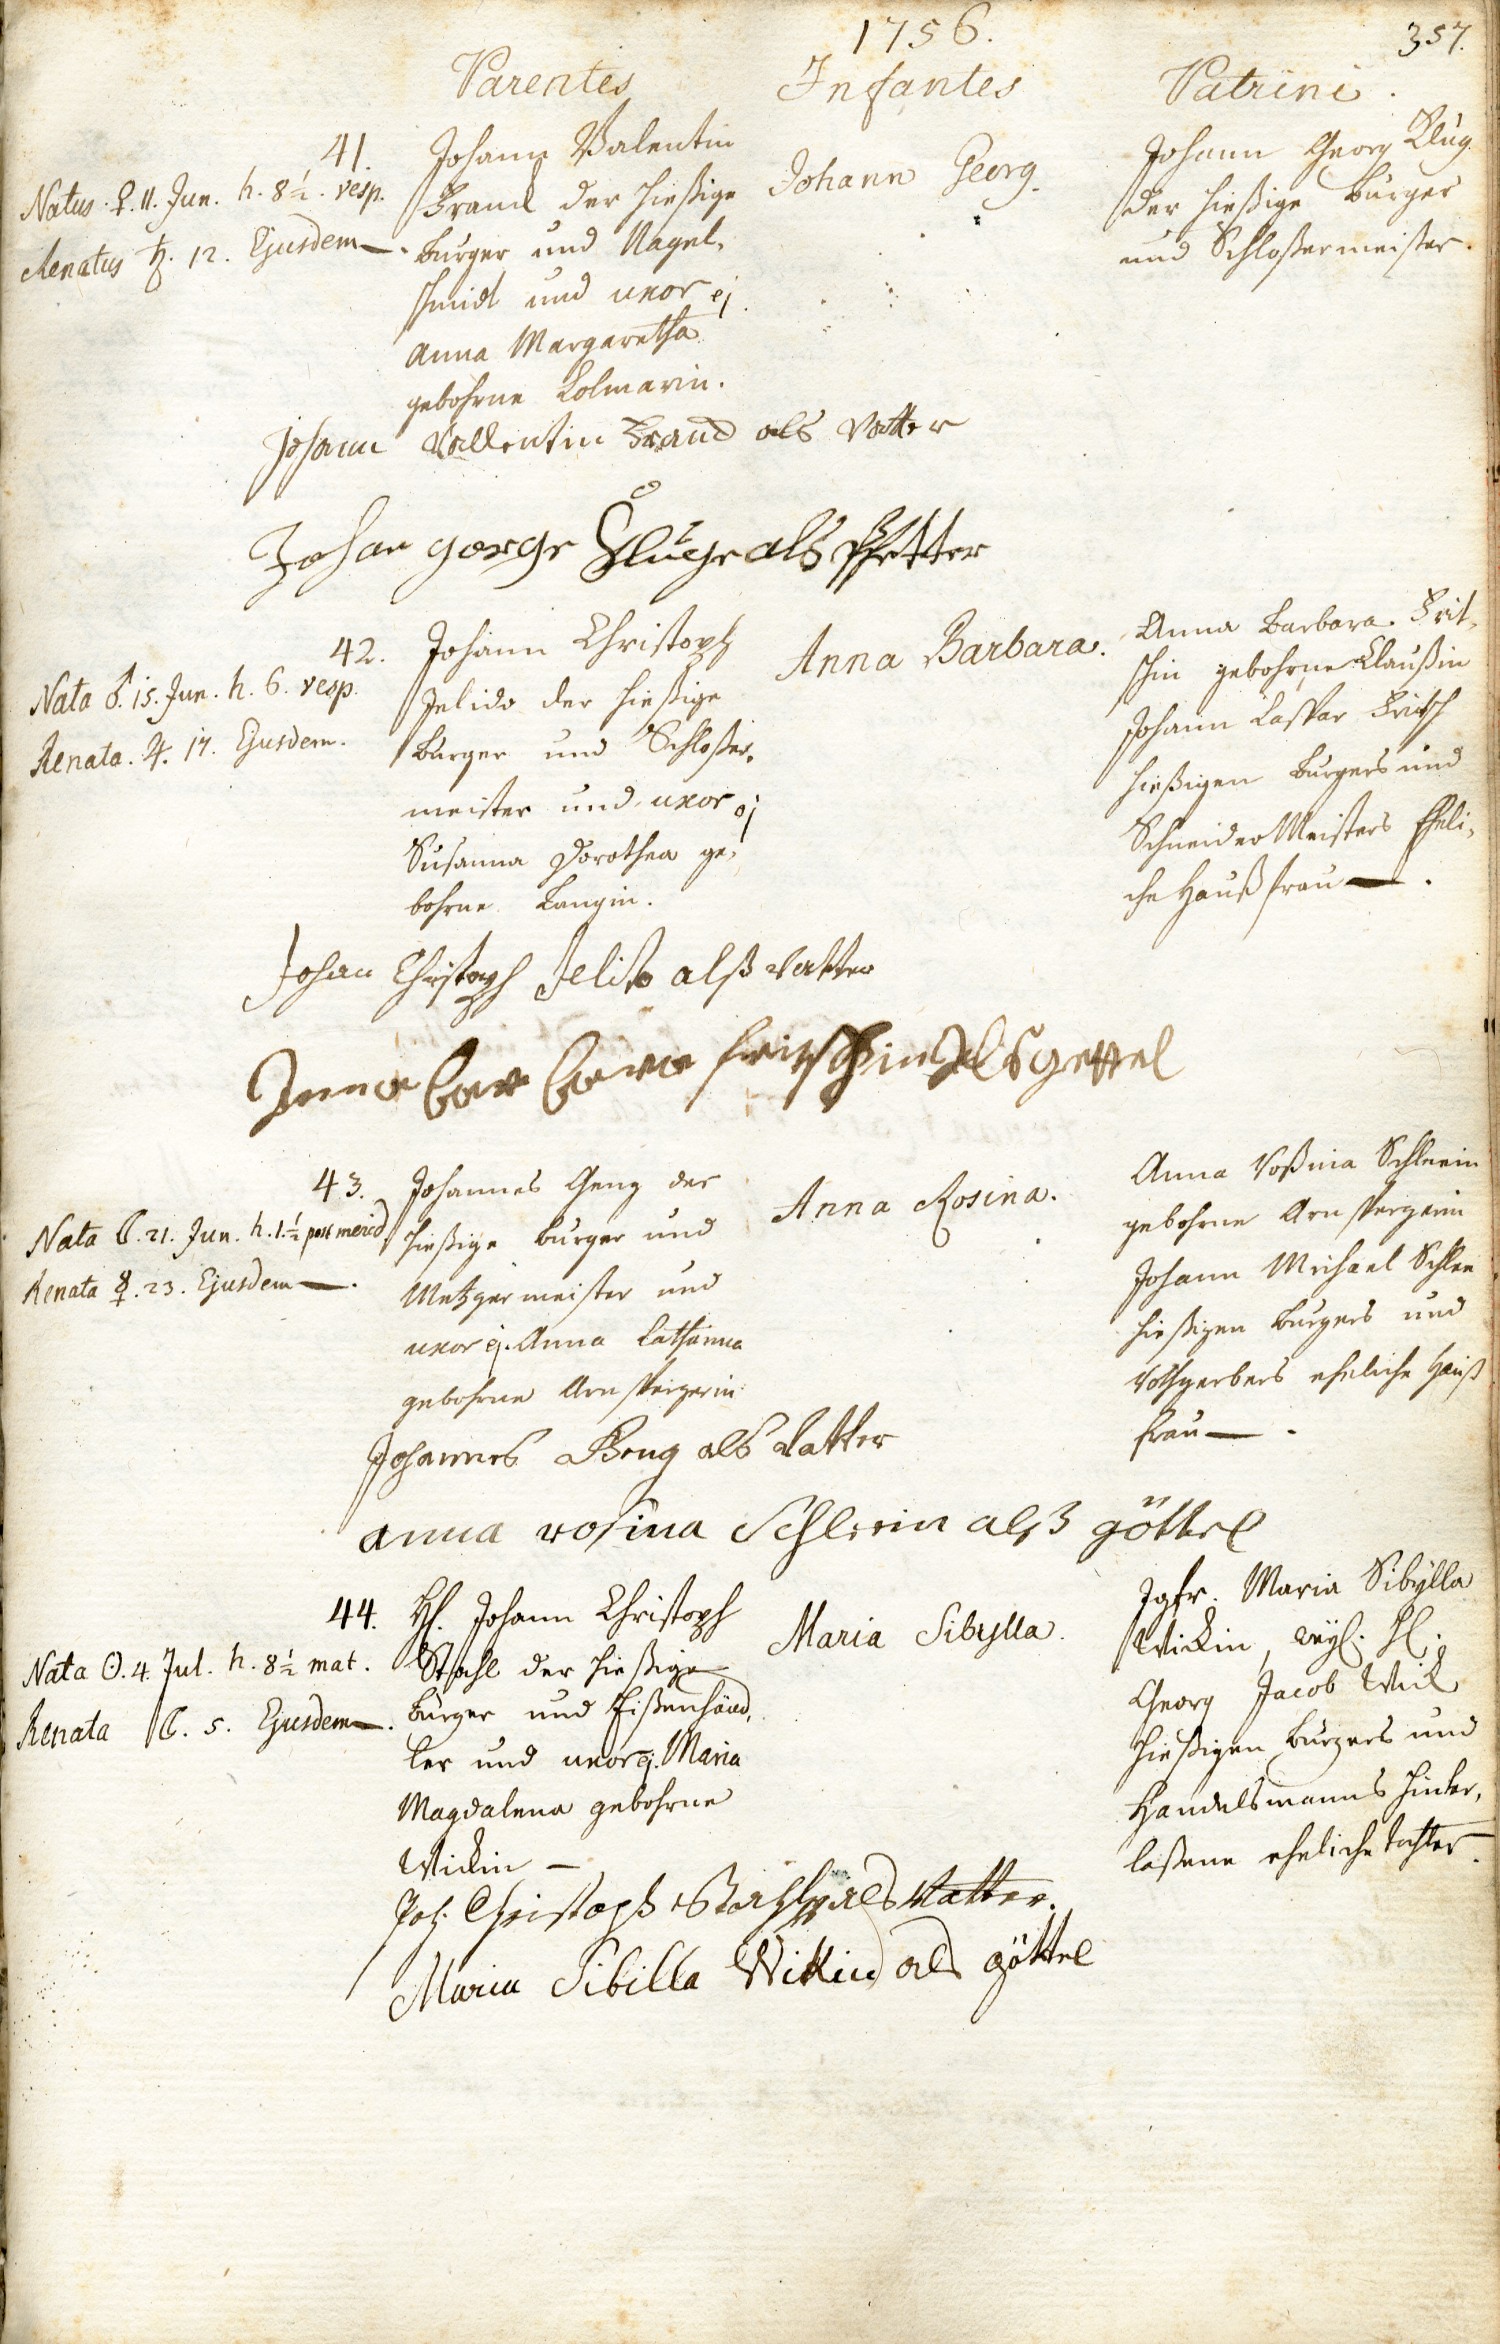 1756.
357.
Parentes
Infantes
Patrini.
41.
Natus. ♀. 11. Jun. h. 8½. vesp.
Renatus ♄. 12. Ejusdem —.
Johann Valentin
Brand der hießige
burger und Nagel,
schmidt und uxor ej.
Anna Margaretha
gebohrne Colmarin.
Johann Georg.
Johann Georg Klug
der hießige burger
und Schloßermeister.
Johann Vallentin Brand als Vatter
Johan gorge Kluge als Pfetter
42.
Nata ♂. 15. Jun. h. 6. vesp.
Renata. ♃. 17. Ejusdem.
Johann Christoph
Jelido der hießige
burger und Schloßer,
meister und uxor ej
Susanna Dorothea ge,
bohrne Langin.
Anna Barbara.
Anna Barbara Frit,
schin gebohrne Claußin
Johann Caspar Fritsch
hießigen burgers und
Schneider Meisters Eheli,
che Haußfrau —.
Johan Christoph Jelito alß Vatter
Anna barbara fritschin Als gettel
43.
Nata ☾. 21. Jun. h. 1.½ post merid.
Renata ☿. 23. Ejusdem —.
Johannes Geng der
hießige burger und
Metzger meister und
uxor ej. Anna Catharina
gebohrne Arnspergerin
Anna Rosina.
Anna Roßina Schleein
gebohrne Arnspergerin
Johann Michael Schlee
hießigen burgers und
Rothgerbers eheliche Hauß
frau —.
Johannes Geng als Vatter
anna rosina Schleein alß göttel
44.
Nata ☉. 4. Jul. h. 8½ mat.
Renata ☾. 5. Ejusdem —.
H. Johann Christoph
Stahl der hießige
burger und Eißenhänd,
ler und uxor ej. Maria
Magdalena gebohrne
Wickin —
Maria Sibylla.
Jgfr. Maria Sibÿlla
Wickin, weyl. H.
Georg Jacob Wick
hießigen burgers und
Handelsmanns hinter,
laßene eheliche tochter.
Joh. Christoph Stahl als Vatter.
Maria Sibilla Wickin als göttel